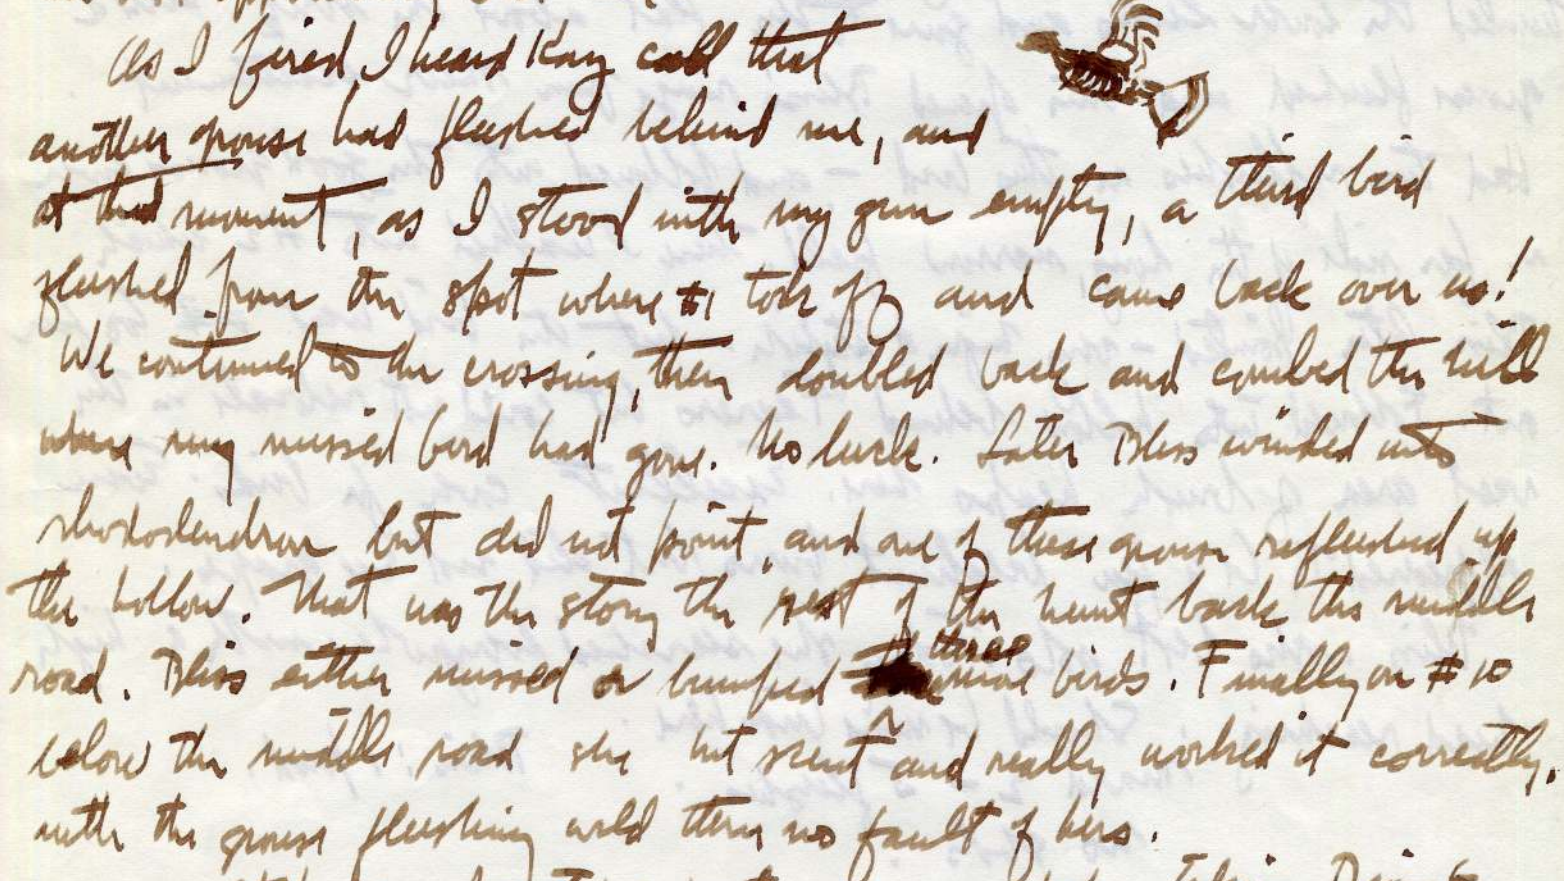 As I fired, I heard Kay call that
another grouse had flushed behind me, and
at that moment, as I stood with my gun empty, a third bird
flushed from the spot where #1 took off and came back over us!
We continued to the crossing, then doubled back and combed the hill
where my missed bird had gone. No luck. Later Bliss winded into
rhododendron but did not point, and one of these grouse reflushed up
the hollow. That was the story the rest of the hunt back the middle
road. Bliss either missed or bumped three more birds. Finally on #10
below the middle road she hit scent and really worked it correctly,
with the grouse flushing wild then no fault of hers.